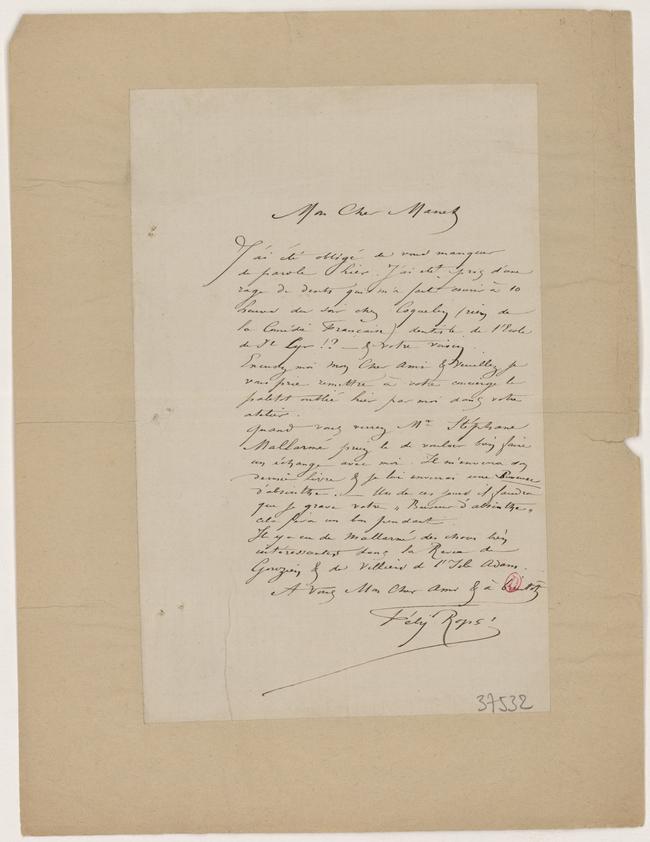 Mon Cher Manet
J'ai été obligé de vous manquer
de parole hier. J'ai été pris d'une
rage de dents qui m'a fait courir à 10
heures du soir chez Coquelin (rien de
la Comédie Française) dentiste de l'Ecole
de St Cyr !? — & votre voisin.
Excusez moi Mon Cher Ami & veuillez je
vous prie remettre à votre concierge le
paletot oublié hier par moi dans votre
atelier.
Quand vous verrez Mr Stéphane
Mallarmé priez le de vouloir bien faire
un échange avec moi. Il m'enverra son
dernier livre & je lui enverrai une Buveuse
d'absinthe. — Un de ces jours il faudra
que je grave votre „Buveur d'absinthe„
cela fera un bon pendant.
Il y a eu de Mallarmé des choses bien
intéressantes dans la Revue de
Gouzien & de Villiers de l'Isle Adam.
A Vous Mon Cher Ami & à bientôt
Fély Rops
37532